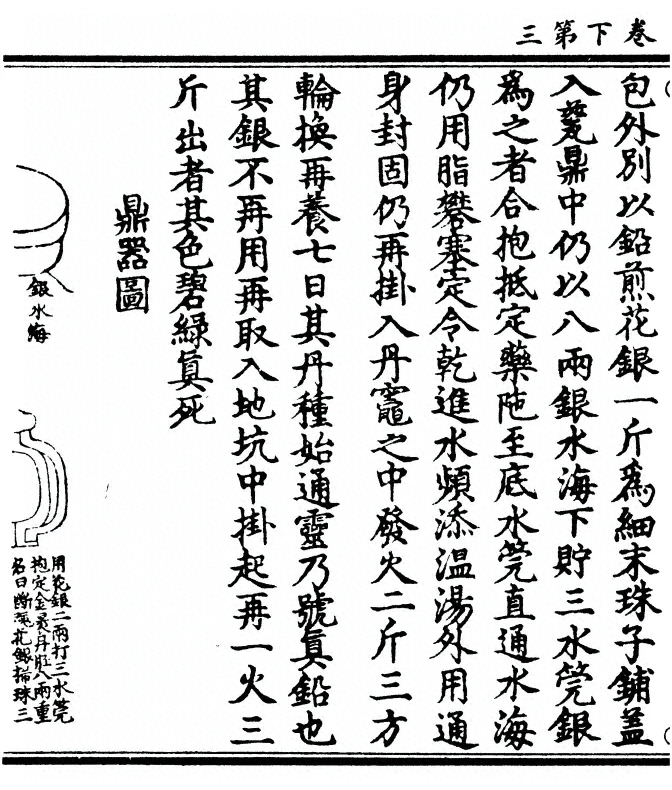 卷下第三
包外別以鉛煎花銀一斤爲細末珠子鋪蓋
入甆鼎中仍以八兩銀水海下貯三水筦銀
爲之者合抱抵定藥阤至底水筦直通水海
仍用脂礬塞定令乾進水頻添温湯外用通
身封固仍再掛入丹竈之中發火二斤三方
輪換再養七日其丹種始通靈乃號真鉛也
其銀不再用再取入地坑中掛起再一火三
斤出者其色碧綠真死
鼎器圖
銀水海
用花銀二兩打三水筦
抱定金丹胚八兩重
名曰斷花銀掃珠三